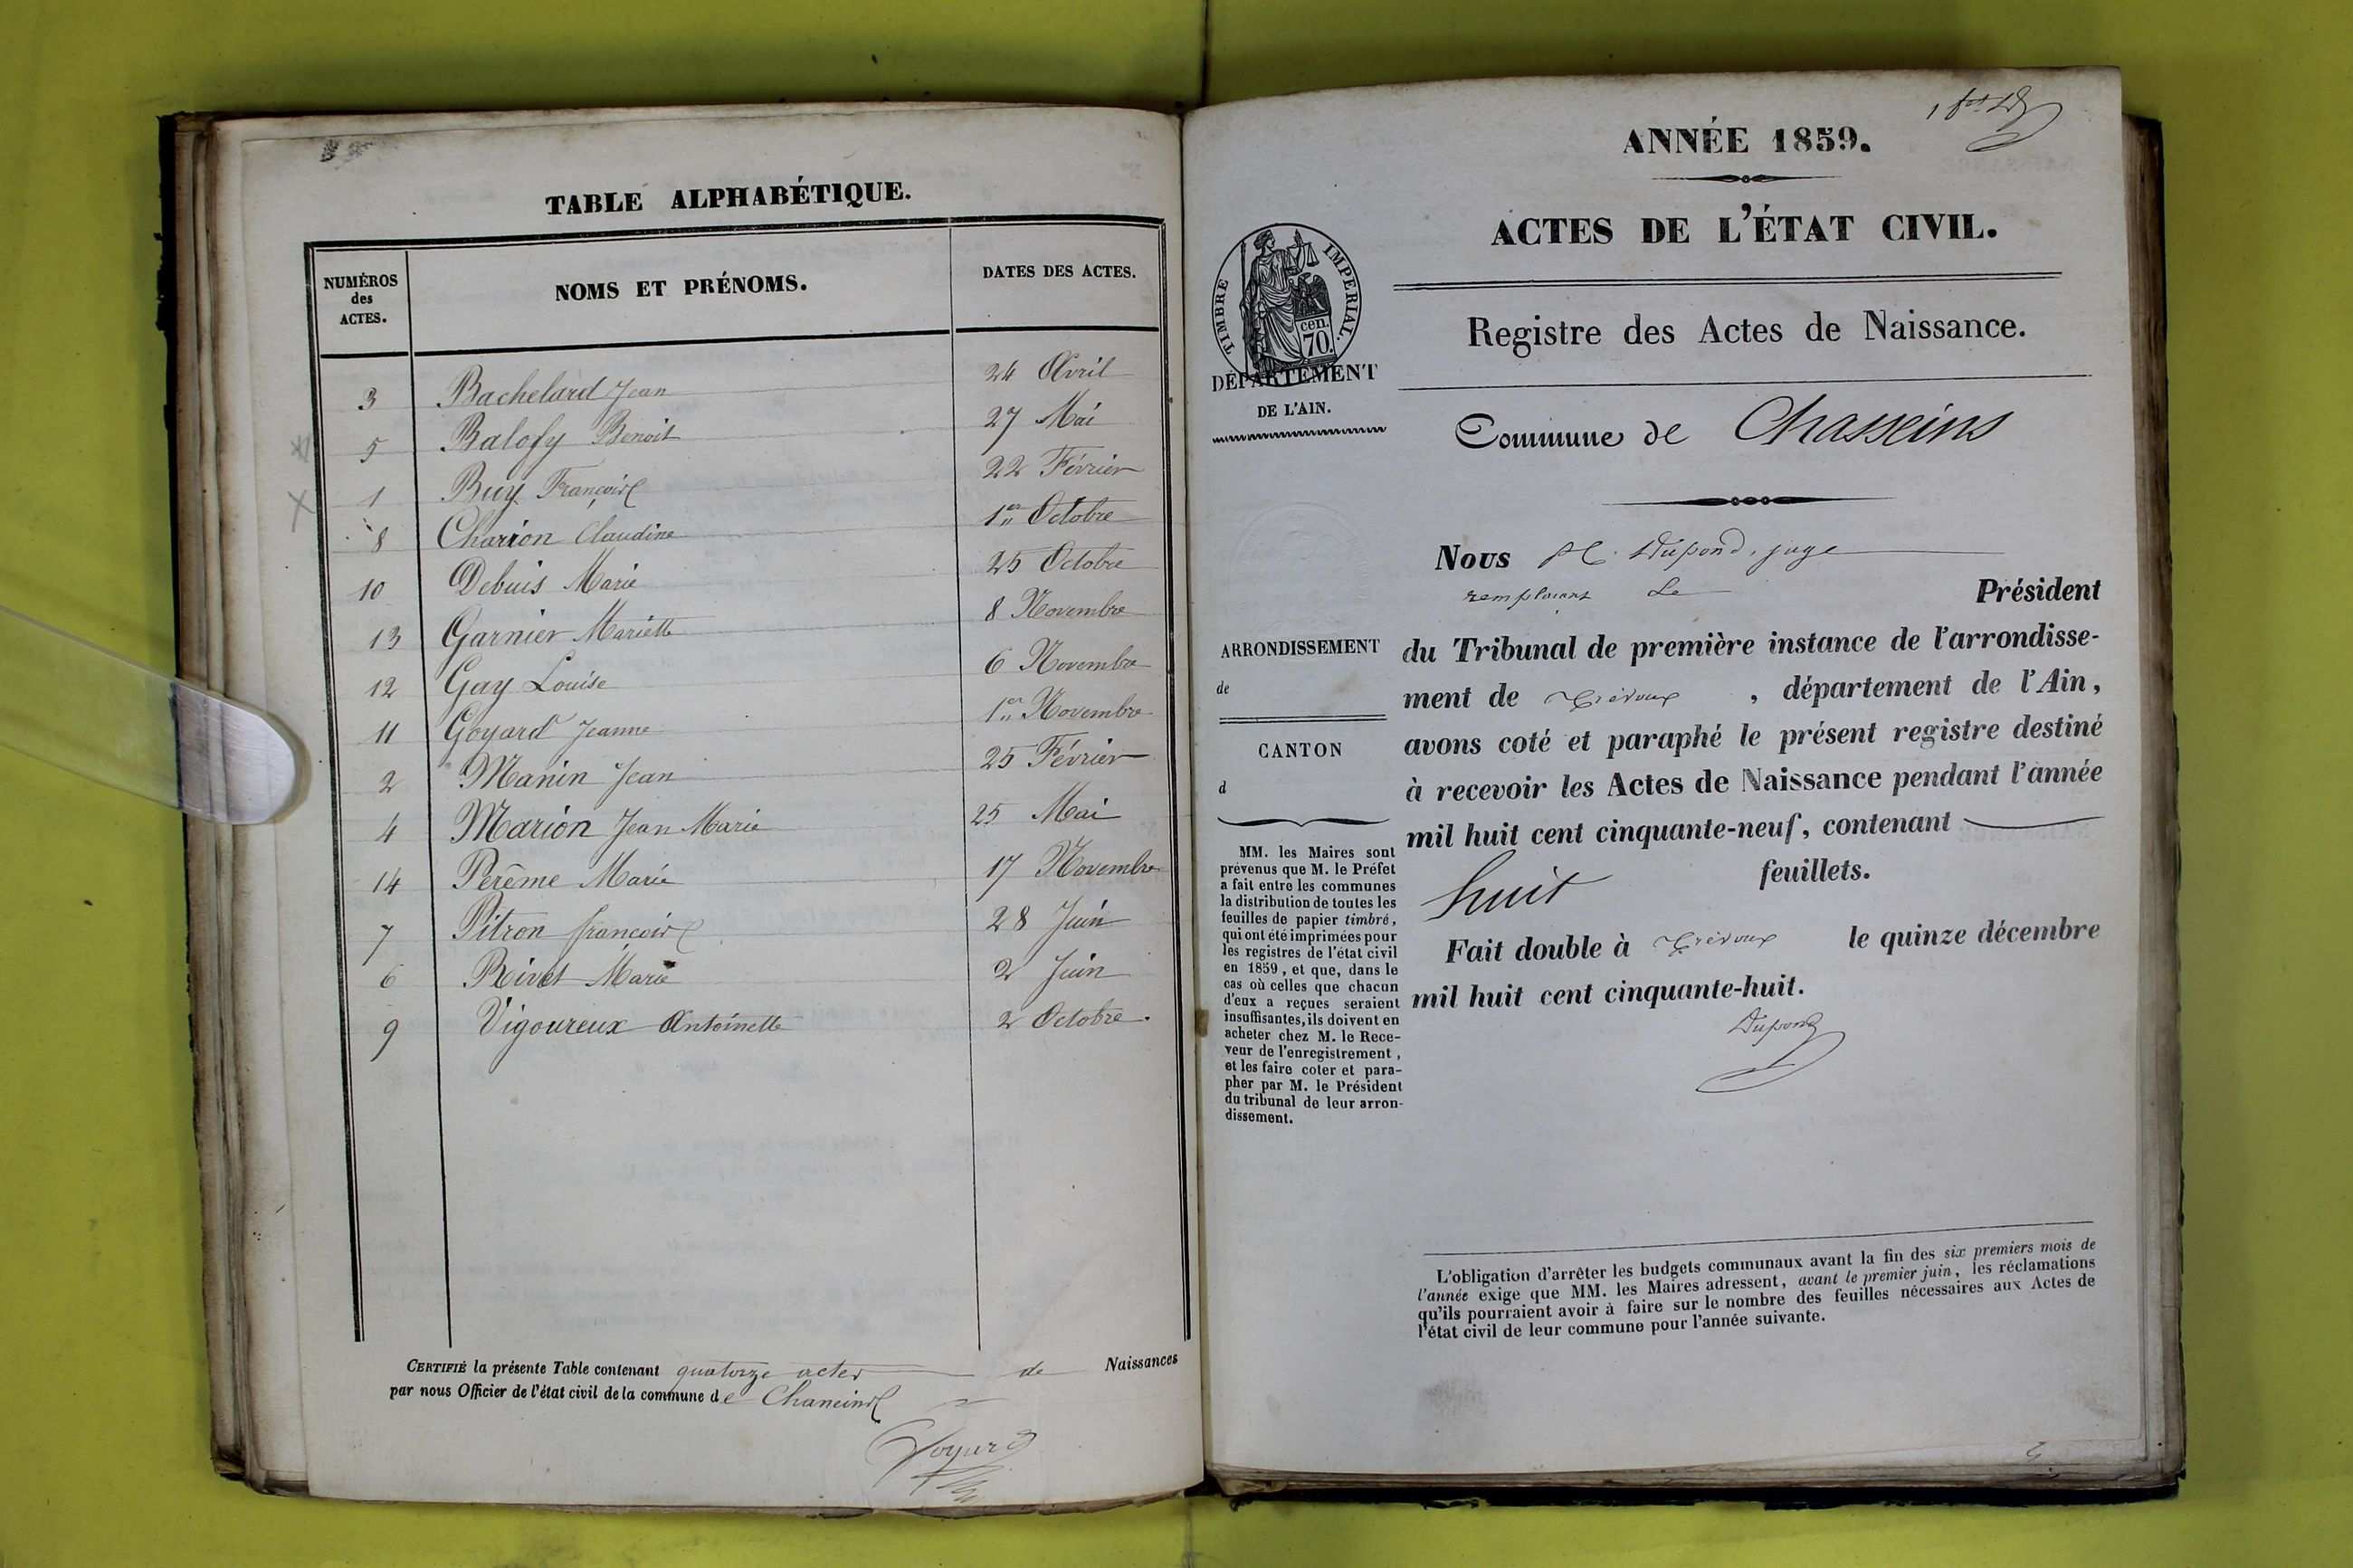 TABLE ALPHABÉTIQUE.
NUMÉROS des ACTES. NOMS ET PRÉNOMS. DATES DES ACTES.
3 Bachelard Jean 24 Avril
5 Balofy Benoit 27 Mai
1 Buy François 22 Février
8 Charion Claudine 1er Octobre
10 Debuis Marie 25 Octobre
13 Garnier Mariette 8 Novembre
12 Gay Louise 6 Novembre
11 Goyard Jeanne 1er Novembre
2 Manin Jean 25 Février
4 Marion Jean Marie 25 Mai
14 Perême Marie 17 Novembre
7 Pitron françois 28 Juin
6 Rivet Marie 2 Juin
9 Vigoureux Antoinette 2 Octobre.
CERTIFIÉ la présente Table contenant quatorze actes de Naissances
par nous Officier de l'état civil de la commune de Chaneins
ANNÉE 1859.
ACTES DE L'ÉTAT CIVIL.
TIMBRE IMPERIAL.
cen.
70
Registre des Actes de Naissance.
DÉPARTEMENT
DE L'AIN.
Commune de Chasseins
Nous Dupond, juge
remplaçant Le Président
ARRONDISSEMENT
de
CANTON
d
du Tribunal de première instance de l'arrondisse-
ment de Trévoux, département de l'Ain,
avons coté et paraphé le présent registre destiné
à recevoir les Actes de Naissance pendant l'année
mil huit cent cinquante-neuf, contenant
huit feuillets.
Fait double à Trévoux le quinze décembre
mil huit cent cinquante-huit.
Dupond
MM. les Maires sont
prévenus que M. le Préfet
a fait entre les communes
la distribution de toutes les
feuilles de papier timbré,
qui ont été imprimées pour
les registres de l'état civil
en 1859, et que, dans le
cas où celles que chacun
d'eux a reçues seraient
insuffisantes, ils doivent en
acheter chez M. le Rece-
veur de l'enregistrement,
et les faire coter et para-
pher par M. le Président
du tribunal de leur arron-
dissement.
L'obligation d'arrêter les budgets communaux avant la fin des six premiers mois de
l'année exige que MM. les Maires adressent, avant le premier juin, les réclamations
qu'ils pourraient avoir à faire sur le nombre des feuilles nécessaires aux Actes de
l'état civil de leur commune pour l'année suivante.